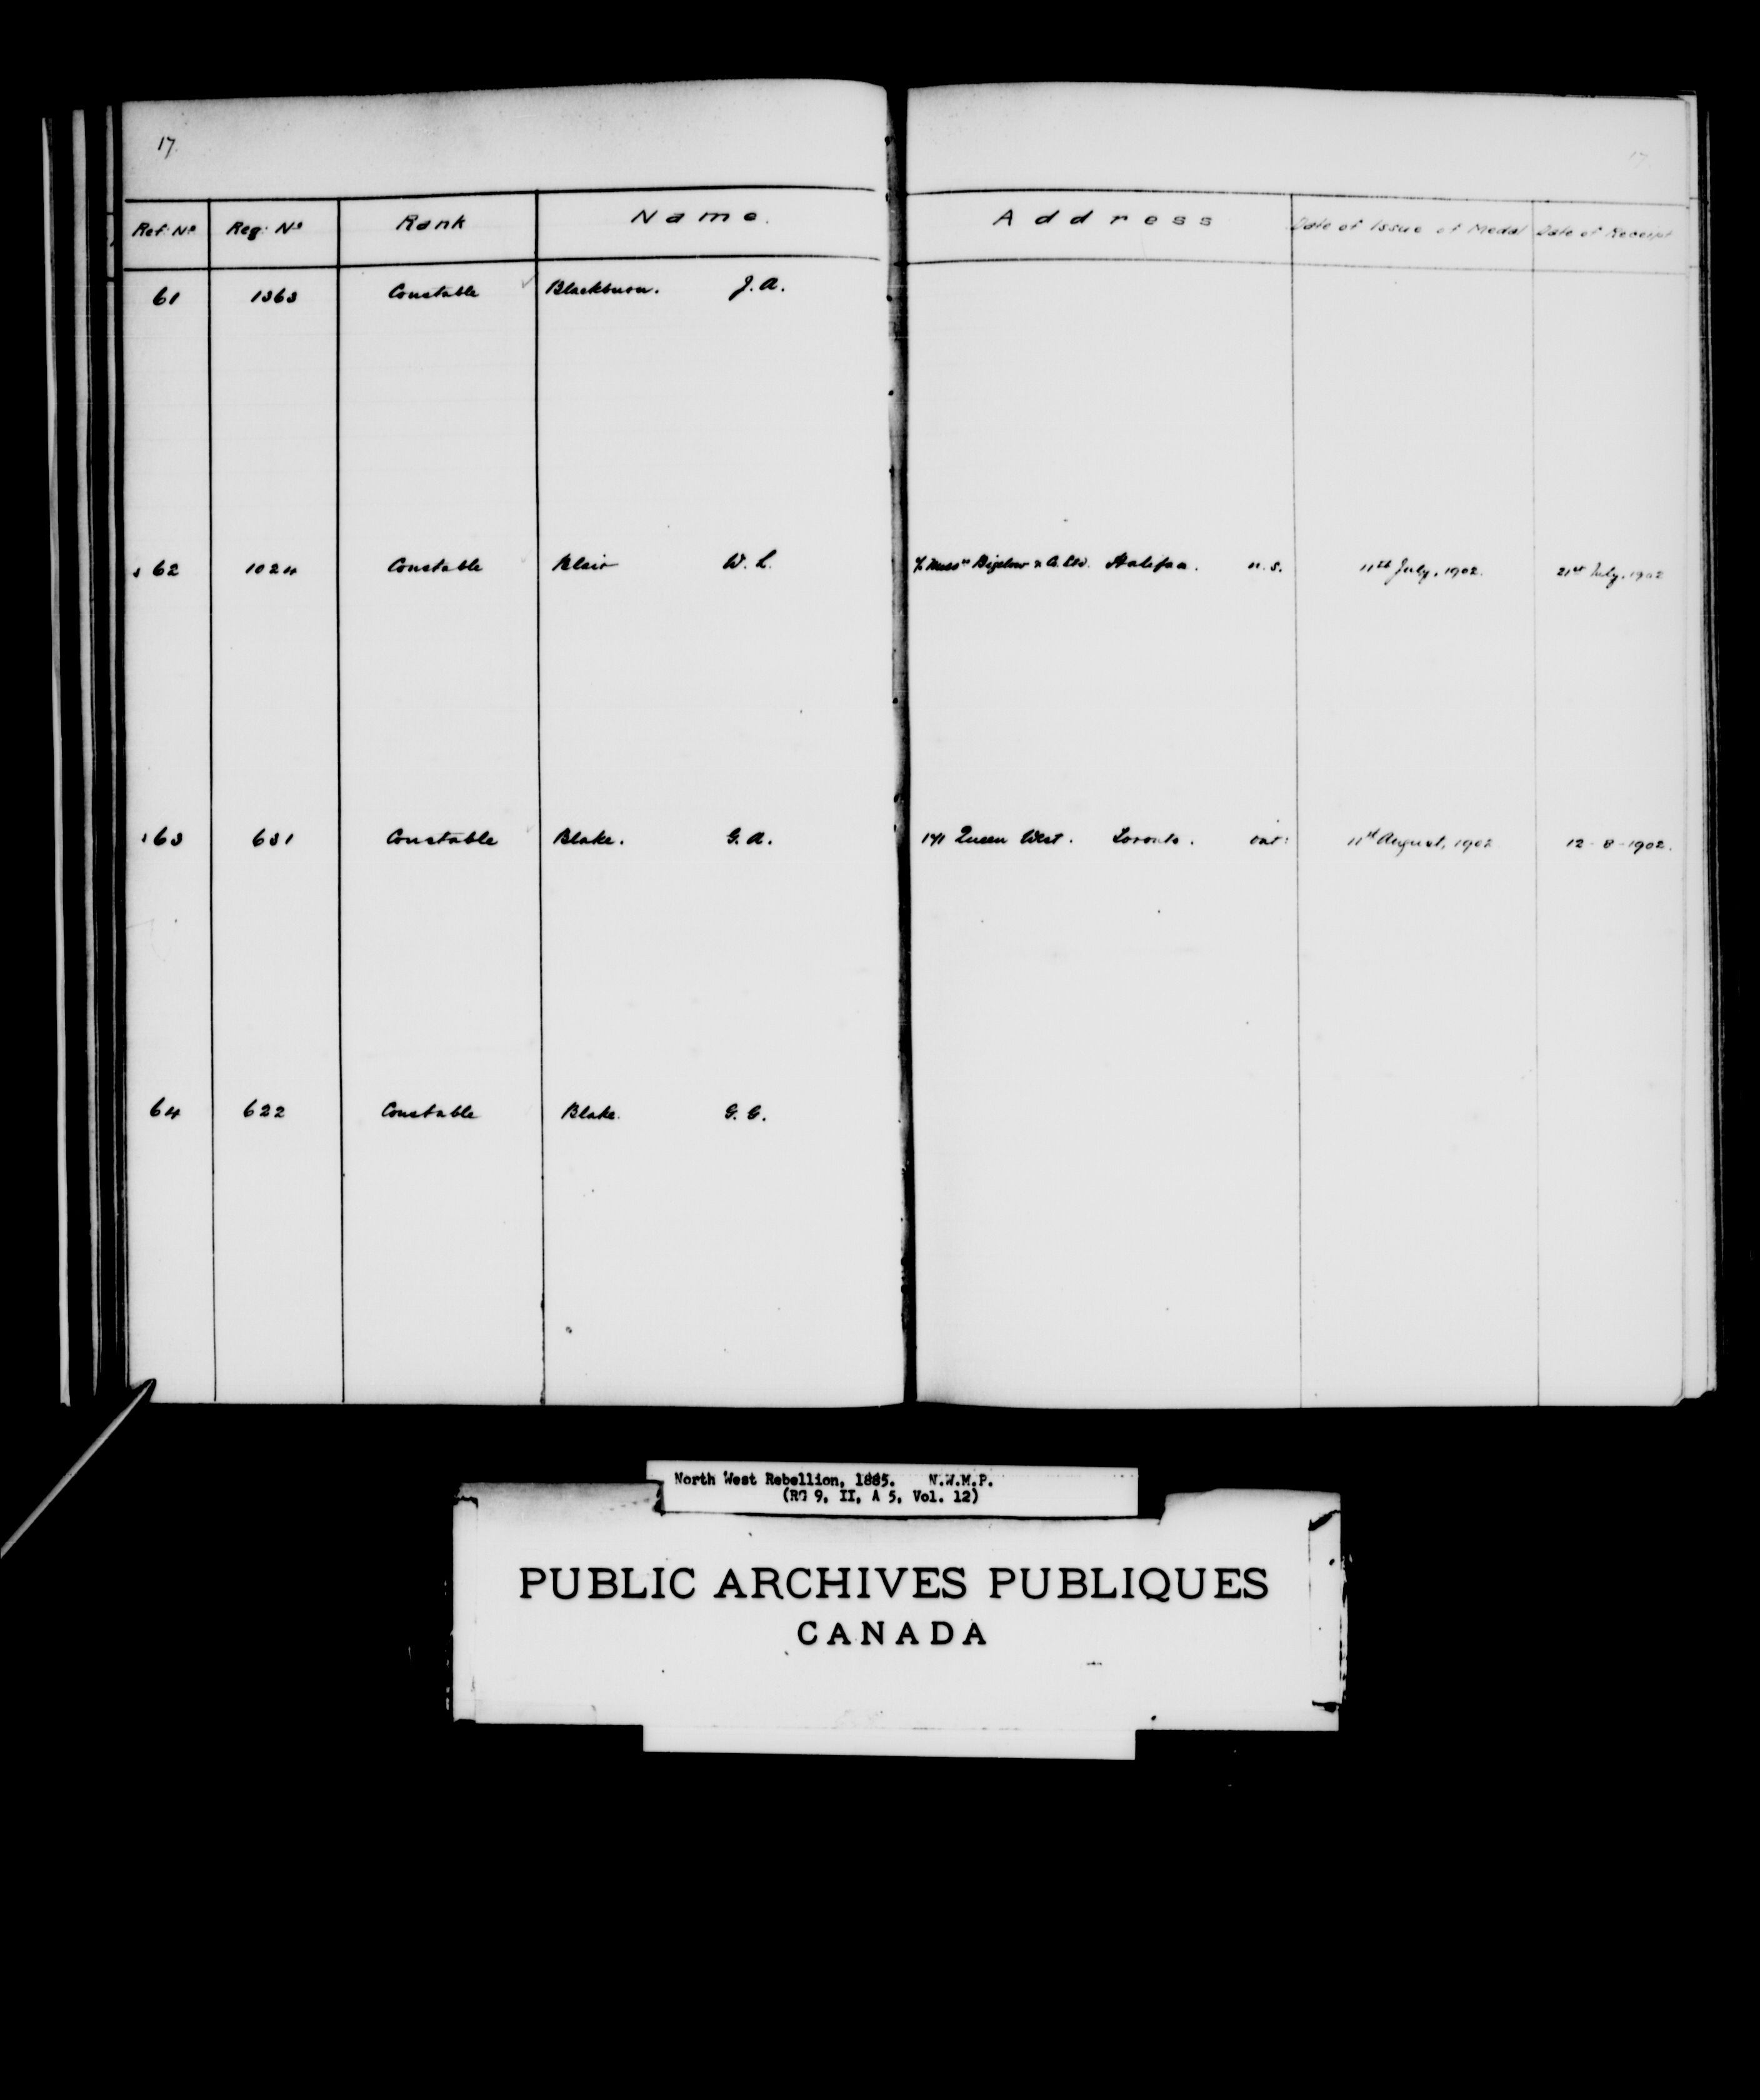 17.
17
Ref: No Reg: No Rank Name. Address Date of Issue of Medal Date of Receipt
61 1363 Constable Blackburn. J. A.
62 1024 Constable Blair W. L. Bigelow & Halifax. N. S. 11th July, 1902. 21st July, 1902
63 631 Constable Blake. G. A. 171 Queen West. Toronto. Ont: 11th August, 1902 12-8-1902.
64 622 Constable Blake. G. G.
North West Rebellion, 1885. N.W.M.P.
(RG 9, II, A 5, Vol. 12)
PUBLIC ARCHIVES PUBLIQUES
CANADA